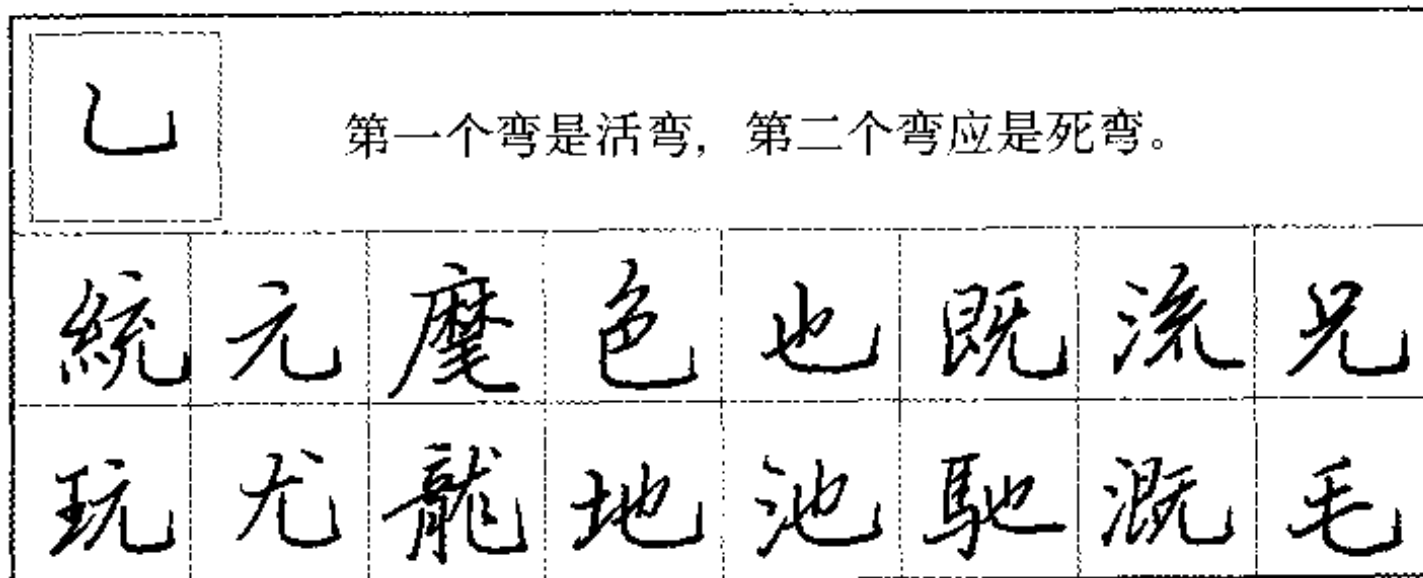 乚 第一个弯是活弯，第二个弯应是死弯。
統 元 麾 色 也 既 流 兄
玩 尤 龍 地 池 馳 溉 毛